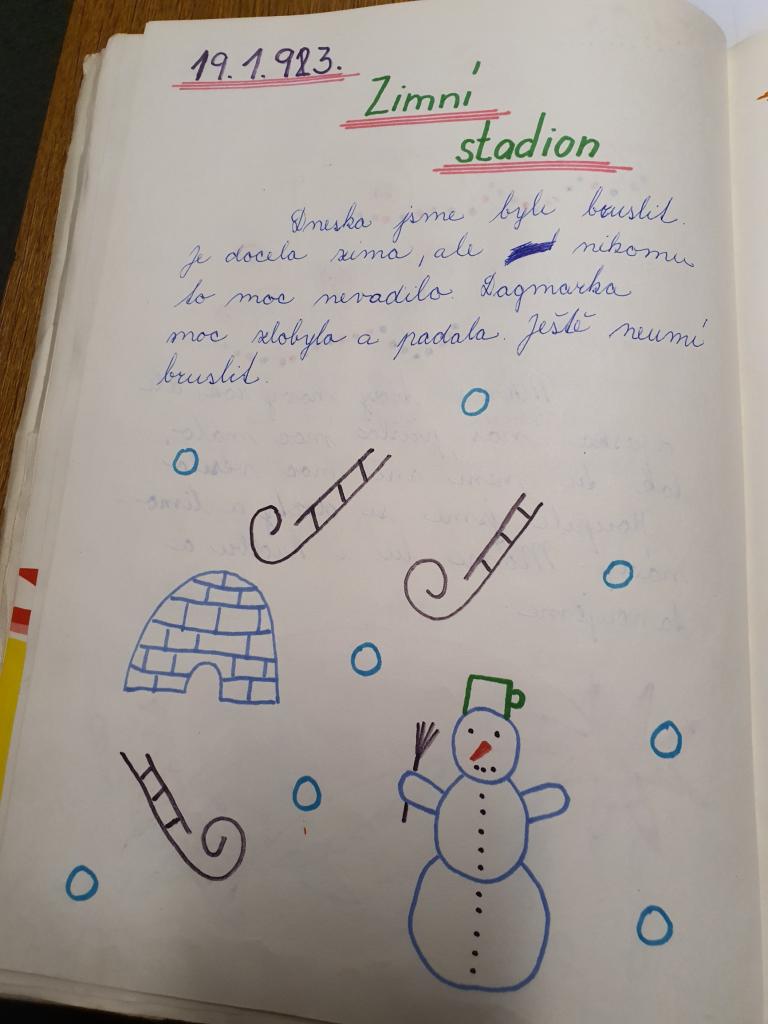 19. 1. 923.
Zimní
stadion
Dneska jsme byli bruslit.
Je docela zima, ale nikomu
to moc nevadilo. Dagmarka
moc zlobyla a padala. Ještě neumí
bruslit.